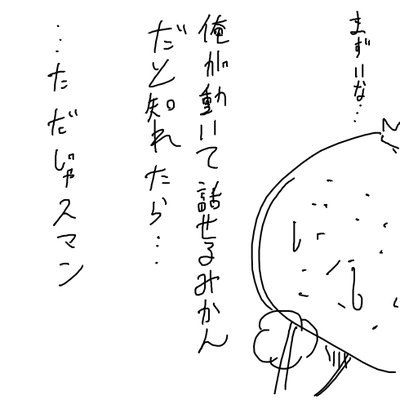 まずいな…
俺が動いて話せるみかん
だと知れたら…
…ただじゃスマン